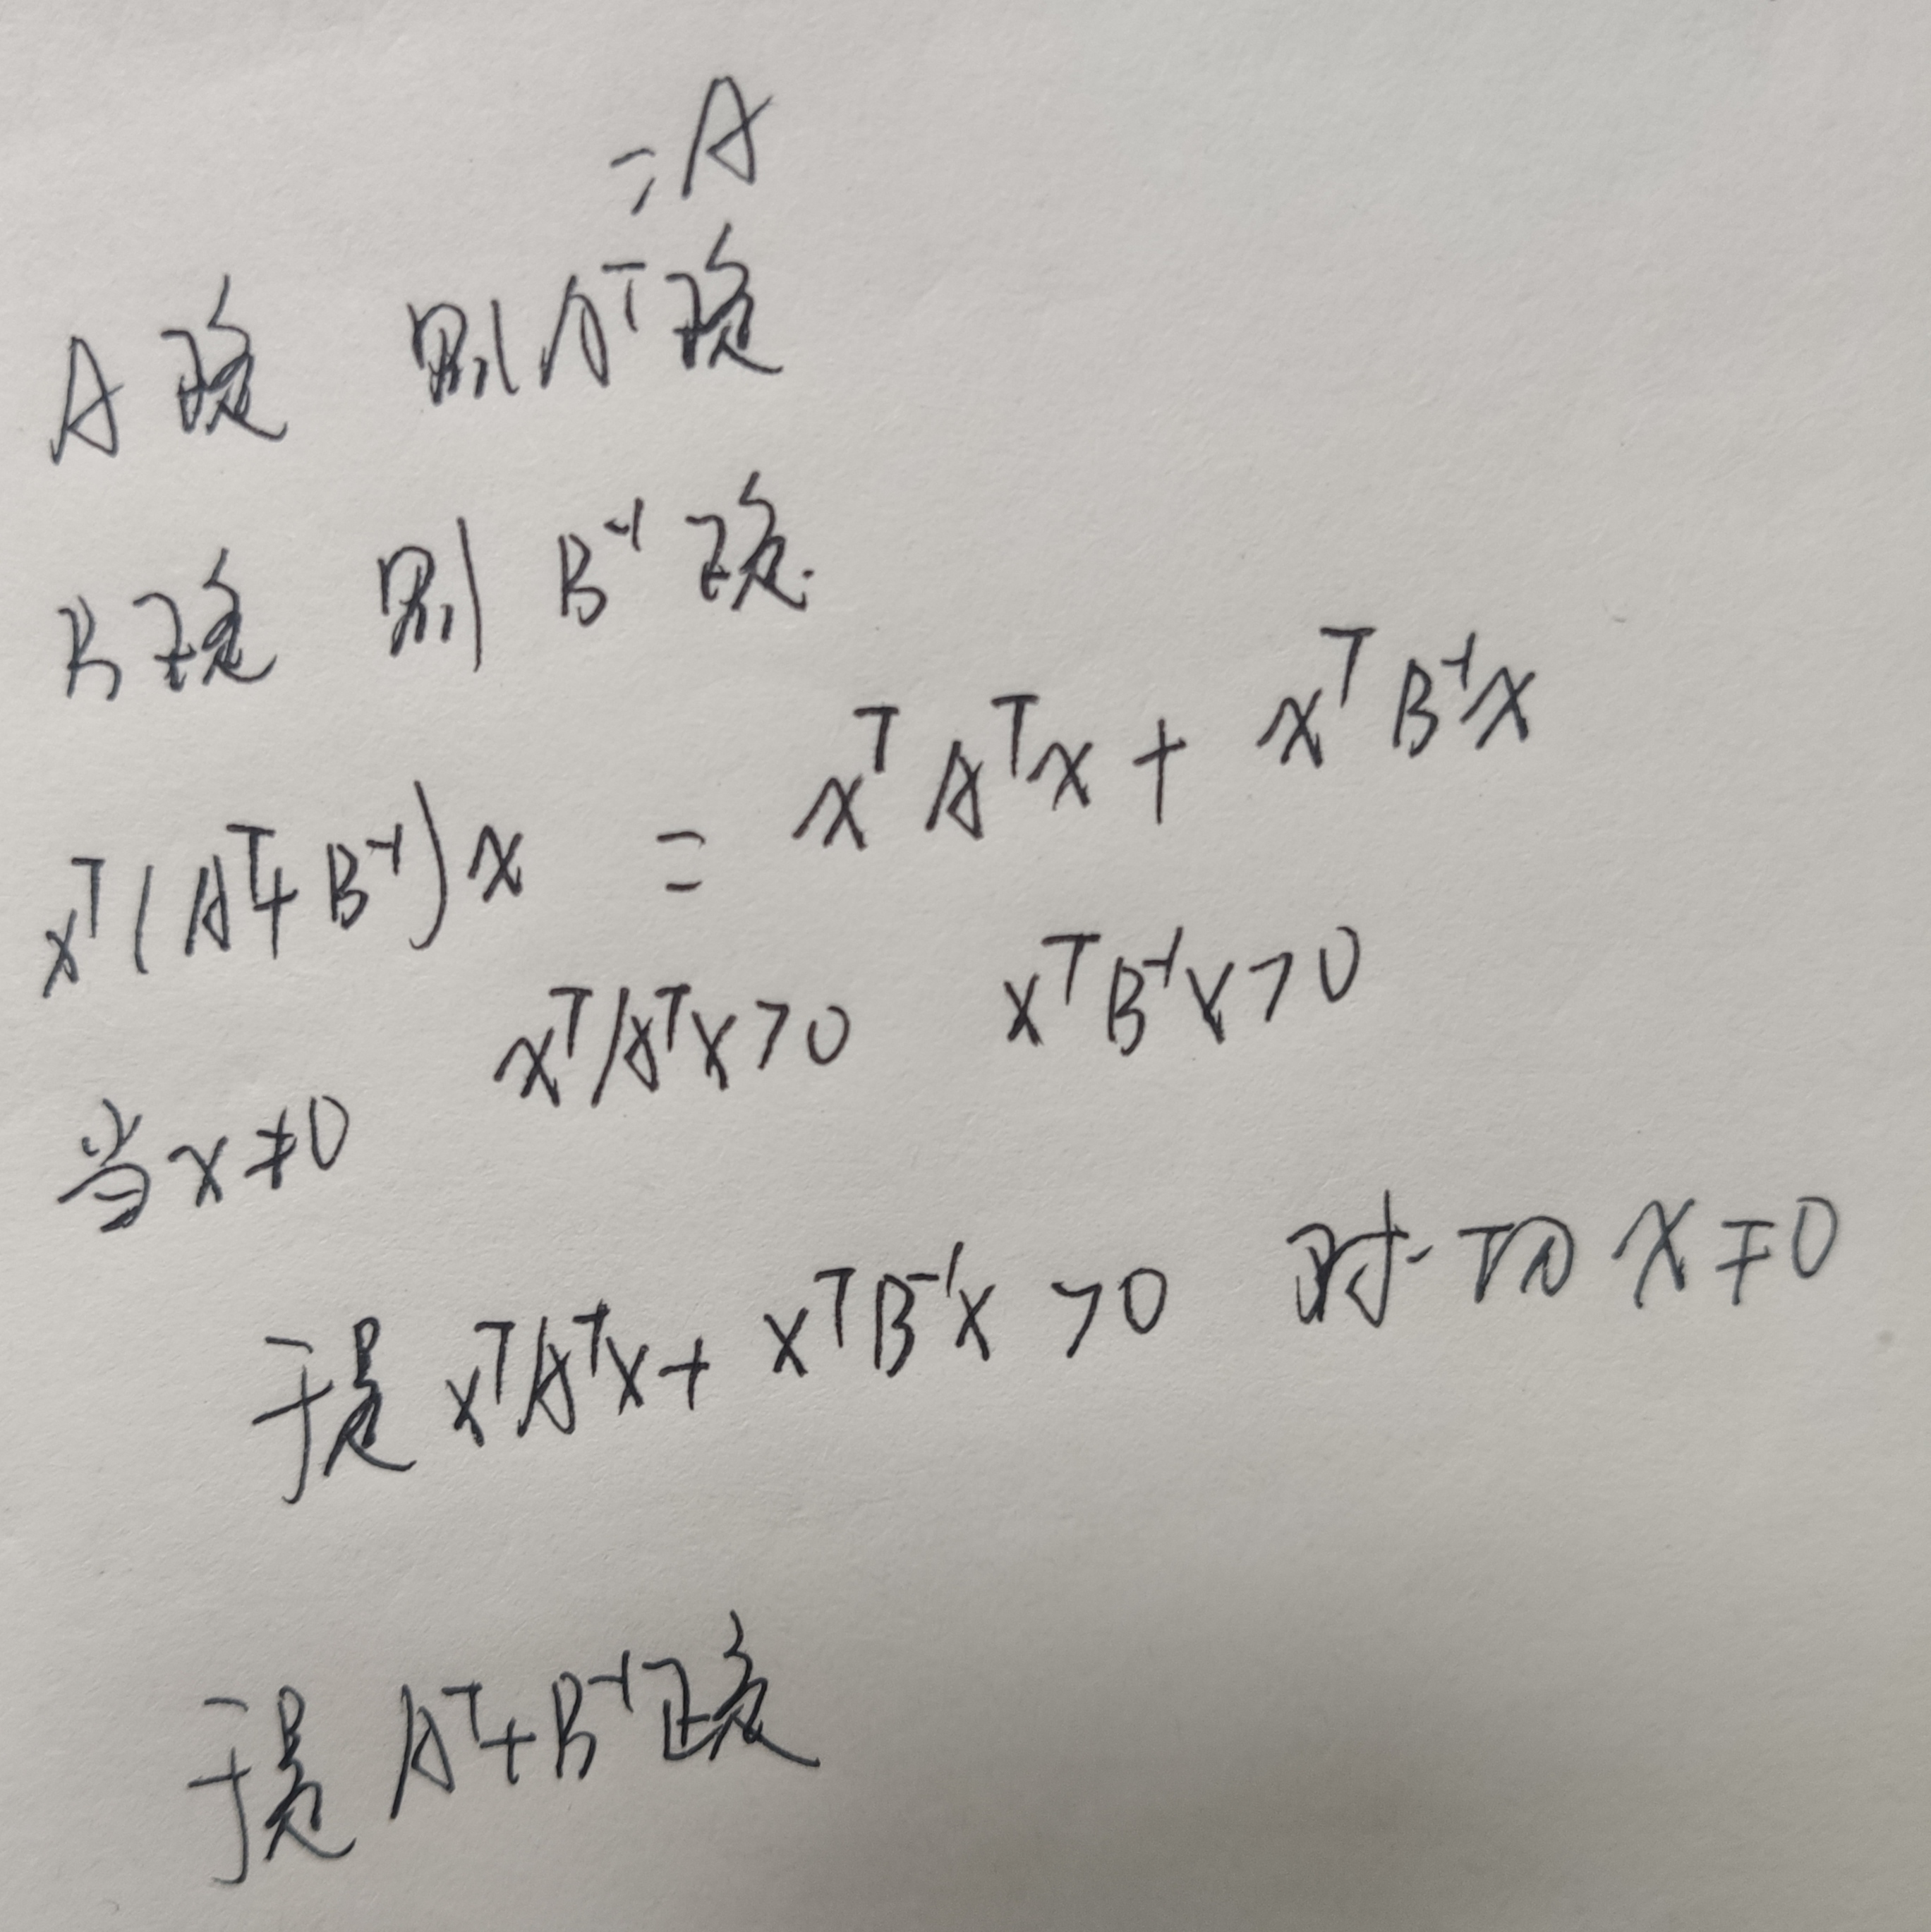 =A
A正定 则A^T正定
B正定 则 B^-1 正定.
x^T(A^T+B^-1)x = x^T A^T x + x^T B^-1 x
当x≠0 x^T A^T x>0 x^T B^-1 x>0
于是 x^T A^T x + x^T B^-1 x >0 对一切 x≠0
于是 A^T+B^-1 正定